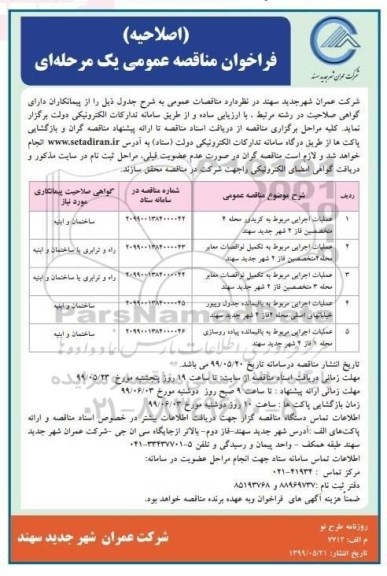 (اصلاحیه)
فراخوان مناقصه عمومی یک مرحله‌ای
شرکت عمران شهر جدید سهند
شرکت عمران شهرجدید سهند در نظردارد مناقصات عمومی به شرح جدول ذیل را از پیمانکاران دارای
گواهی صلاحیت در رشته مرتبط ، با ارزیابی ساده و از طریق سامانه تدارکات الکترونیکی دولت برگزار
نماید. کلیه مراحل برگزاری مناقصه از دریافت اسناد مناقصه تا ارائه پیشنهاد مناقصه گران و بازگشایی
پاکت ها از طریق درگاه سامانه تدارکات الکترونیکی دولت (ستاد) به آدرس www.setadiran.ir انجام
خواهد شد و لازم است مناقصه گران در صورت عدم عضویت قبلی، مراحل ثبت نام در سایت مذکور و
دریافت گواهی امضای الکترونیکی راجهت شرکت در مناقصه محقق سازند.
ردیف شرح موضوع مناقصه عمومی شماره مناقصه در سامانه ستاد گواهی صلاحیت پیمانکاری مورد نیاز
۱ عملیات اجرایی مربوط به کریدور محله ۴ متخصصین فاز ۲ شهر جدید سهند ۲۰۹۹۰۰۱۳۸۴۰۰۰۰۴۲ ساختمان و ابنیه
۲ عملیات اجرایی مربوط به تکمیل نواقصات معابر محله ۲متخصصین فاز ۲ شهر جدید سهند ۲۰۹۹۰۰۱۳۸۴۰۰۰۰۴۳ راه و ترابری یا ساختمان و ابنیه
۳ عملیات اجرایی مربوط به تکمیل نواقصات معابر محله ۳ متخصصین فاز ۲ شهر جدید سهند ۲۰۹۹۰۰۱۳۸۴۰۰۰۰۴۴ راه و ترابری یا ساختمان و ابنیه
۴ عملیات اجرایی مربوط به باقیمانده جدول وپیور خیابانهای اصلی محله ۲فاز ۲ شهر جدید سهند ۲۰۹۹۰۰۱۳۸۴۰۰۰۰۴۵ ساختمان و ابنیه
۵ عملیات اجرایی مربوط به باقیمانده پیاده روسازی محله ۱ فاز ۲ شهر جدید سهند ۲۰۹۹۰۰۱۳۸۴۰۰۰۰۴۶ ساختمان و ابنیه
تاریخ انتشار مناقصه درسامانه تاریخ ۹۹/۰۵/۲۰ می باشد.
مهلت زمانی دریافت اسناد مناقصه از سایت: تا ساعت ۱۹ روز پنجشنبه مورخ ۹۹/۰۵/۲۳
مهلت زمانی ارائه پیشنهاد : تا ساعت ۹ صبح روز دوشنبه مورخ ۹۹/۰۶/۰۳
زمان بازگشایی پاکت ها : ساعت ۱۰ روز دوشنبه مورخ ۹۹/۰۶/۰۳
اطلاعات تماس دستگاه مناقصه گزار جهت دریافت اطلاعات بیشتر در خصوص اسناد مناقصه و ارائه
پاکت‌های الف :آدرس شهر جدید سهند-فاز دوم- بالاتر ازجایگاه سی ان جی -شرکت عمران شهر جدید
سهند طبقه همکف - واحد پیمان و رسیدگی و تلفن ۵-۰۴۱-۳۳۴۳۷۷۰۱
اطلاعات تماس سامانه ستاد جهت انجام مراحل عضویت در سامانه:
مرکز تماس : ۴۱۹۳۴-۰۲۱
دفتر ثبت نام :۸۸۹۶۹۷۳۷ و ۸۵۱۹۳۷۶۸
ضمناً هزینه آگهی های فراخوان وبه عهده برنده مناقصه خواهد بود.
روزنامه طرح نو
م الف: ۷۷۱۲
تاریخ انتشار: ۱۳۹۹/۰۵/۲۱
شرکت عمران شهر جدید سهند